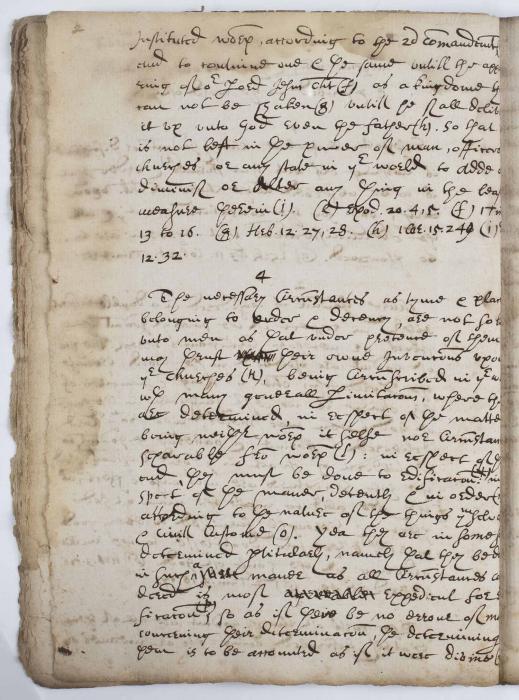 Instituted worp, according to the 2d comandemt
and to continue one & the same untill the app
ring of or Lord Jesus Christ (f) as a kingdome th
can not be shaken (g) untill he shall deliv
it vp unto God even the father (h), so that
is not left in the power of man, officers
churches or any state in ye world to adde o
diminish or alter any thing in the leas
measure therein (i). (e) exod. 20. 4, 5. (f) 1 Tim
13 to 16. (g) Heb. 12. 27, 28. (h) 1 Cor. 15. 24 (i)
12. 32
4
The necessary Circumstances as tyme & place
belonging to order & decency, are not so l
unto men as that under pretence of them
may thrust their owne Inventions vpon
ye churches (k), being Circumscribed in ye w
wth many generall Limitations, where th
are determined, in respect of the matte
being neither worp it selfe nor Circumstan
separable from worp (l): in respect of th
end, they must be done to edification (m) in
spect of the maner, decently & in order
according to the nature of the things ymselv
& civill custome (o). yea they are in some
determined pticularly, namely that they be d
in such a maner as all Circumstances co
dered is most expedient for e
fication (p) so as if there be no errour of m
concerning their determination, the determining
them is to be accounted as if it were divine